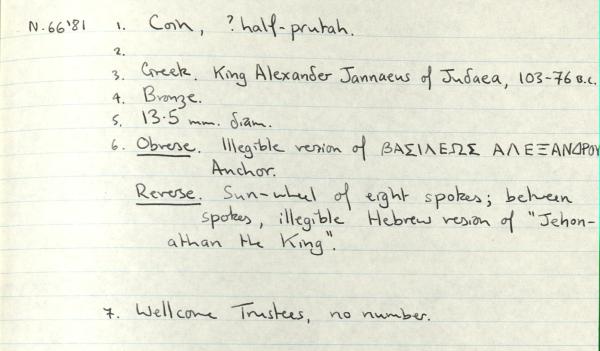 N.66'81 1. Coin, ? half-prutah.
2.
3. Greek. King Alexander Jannaeus of Judaea, 103-76 B.C.
4. Bronze.
5. 13.5 mm. diam.
6. Obverse. Illegible version of ΒΑΣΙΛΕΩΣ ΑΛΕΞΑΝΔΡΟΥ
Anchor.
Reverse. Sun-wheel of eight spokes; between
spokes, illegible Hebrew version of "Jehon-
athan the King".
7. Wellcome Trustees, no number.